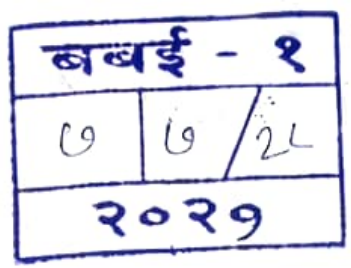 बबई - १
७ ७/२८
२०२१